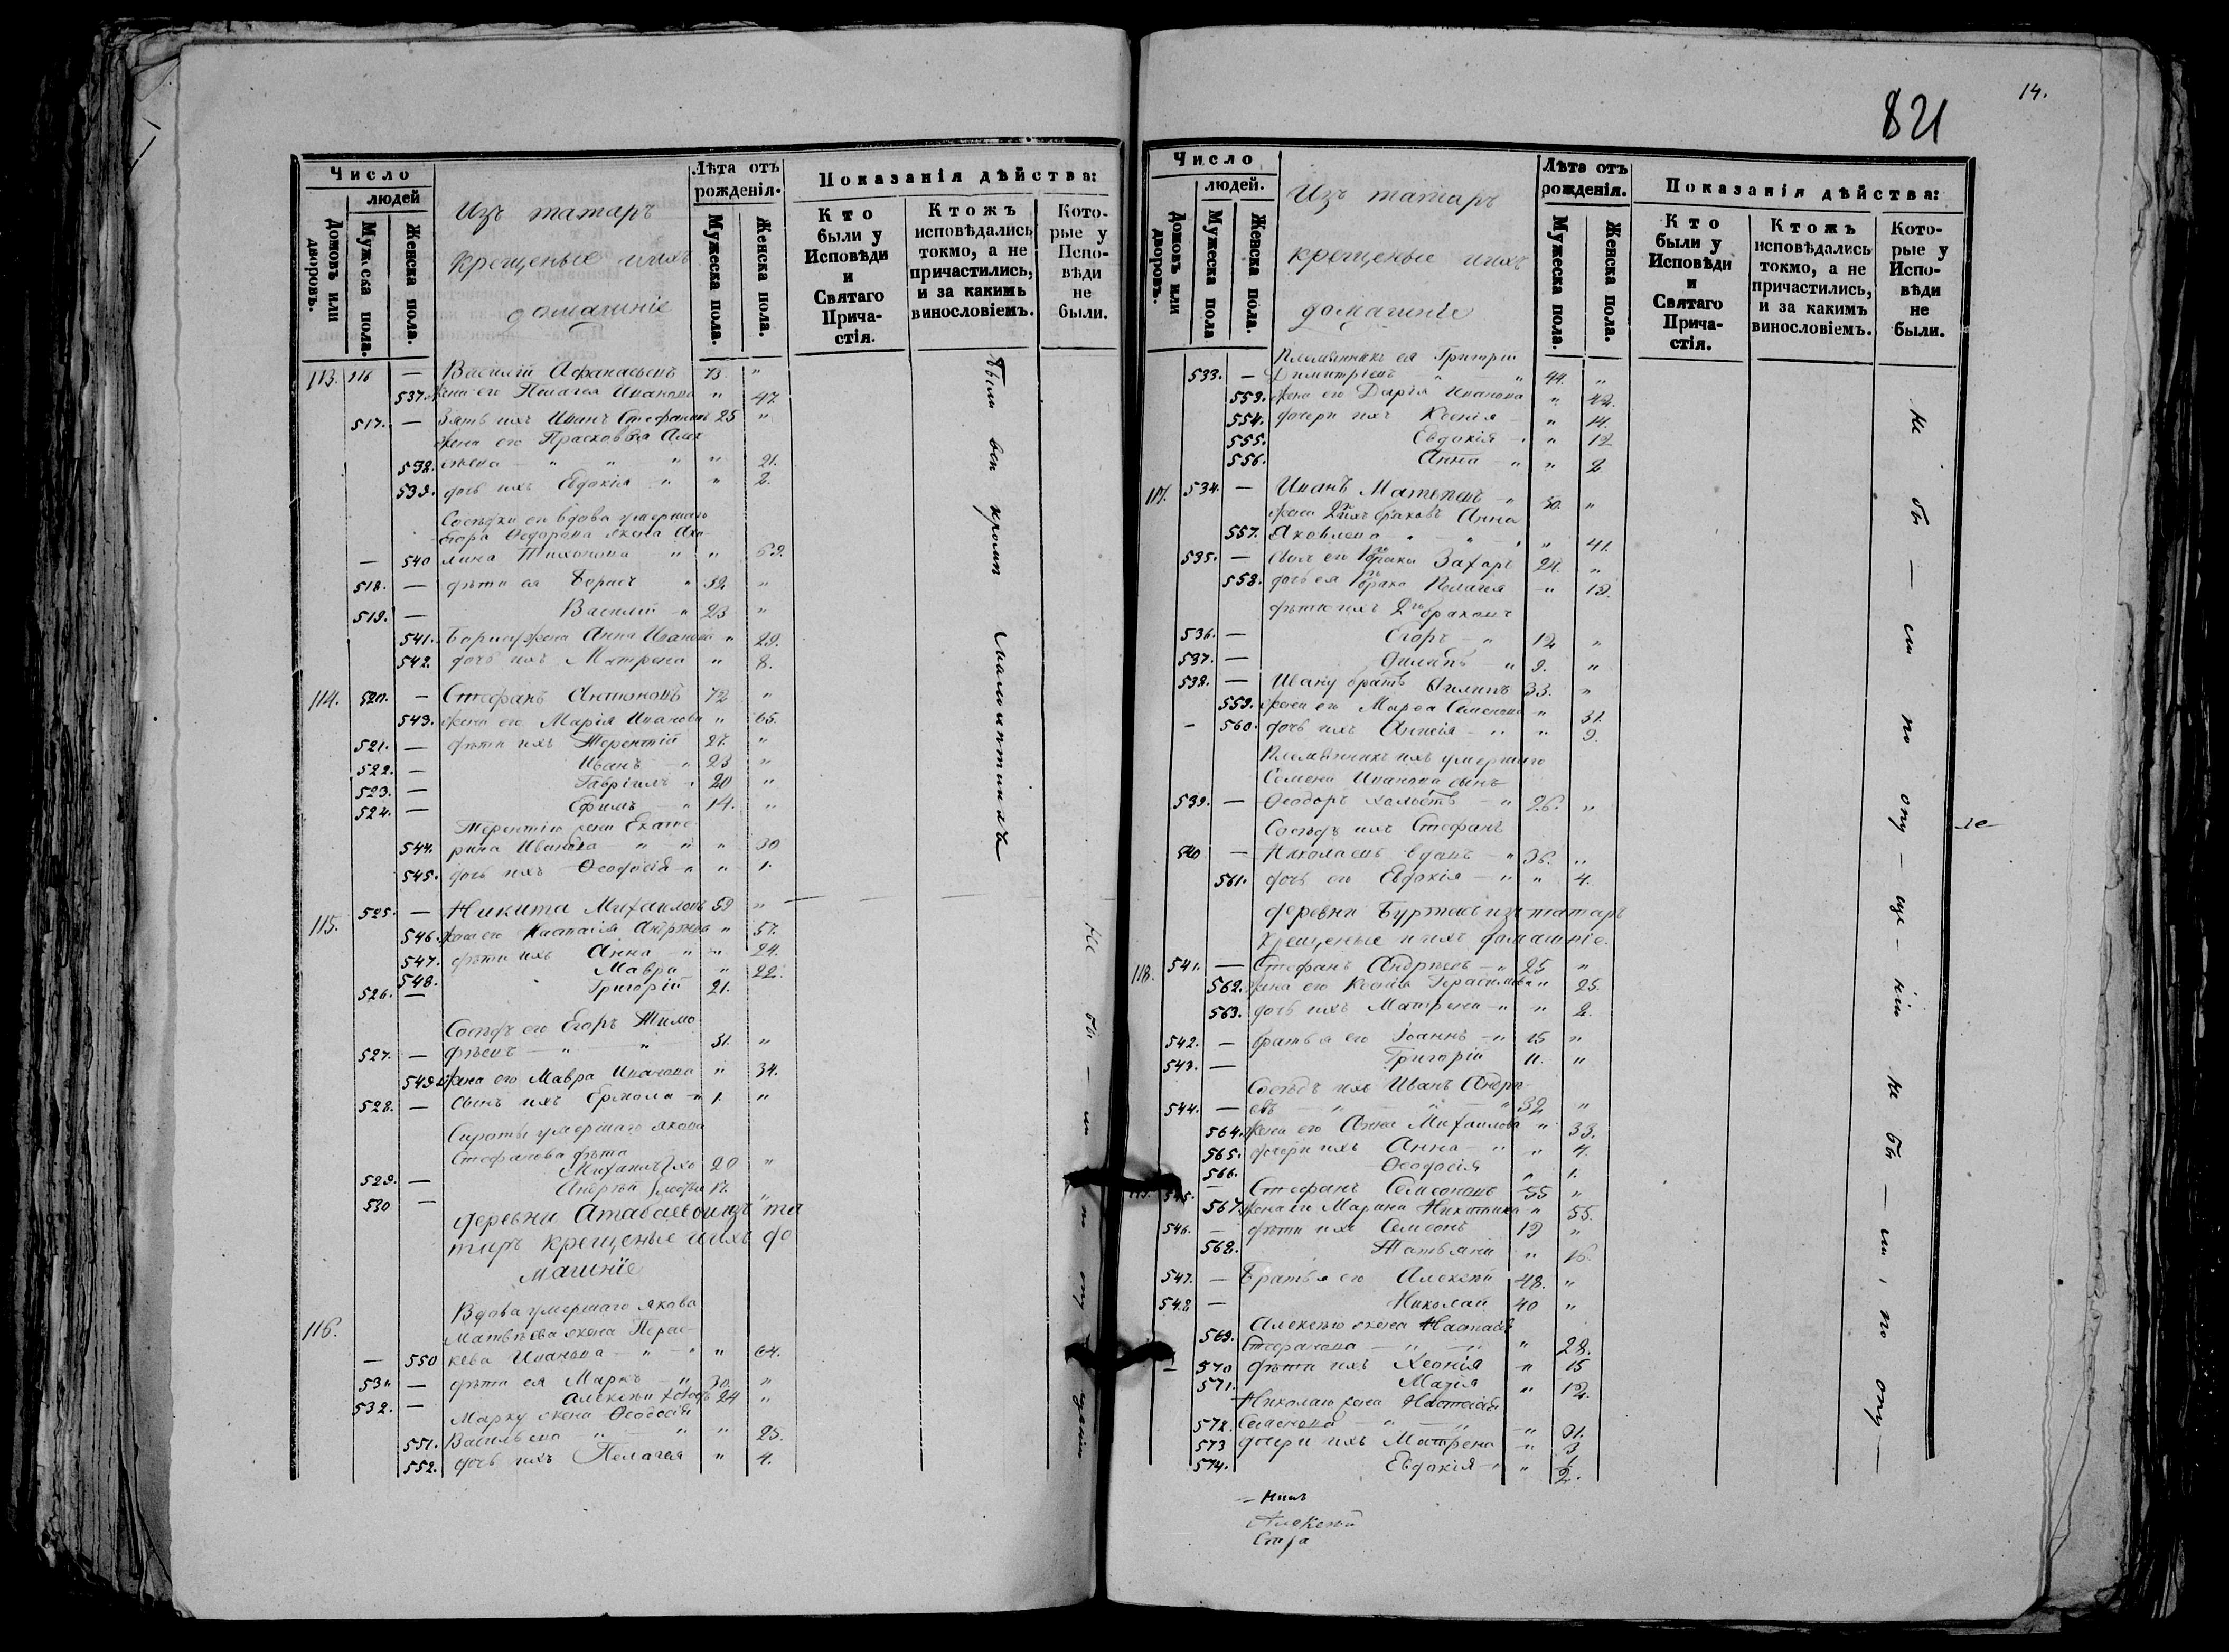 Число
людей
Домовъ или дворовъ.
Мужеска пола.
Женска пола.
Изъ татаръ
крещеные и ихъ
домашніе
Лѣта отъ рожденія.
Мужеска пола.
Женска пола.
Показанія дѣйства:
Кто были у Исповѣди и Святаго Причастія.
Ктожъ исповѣдались токмо, а не причастились, и за какимъ винословіемъ.
Которые у Исповѣди не были.
113. 516 — Василій Афанасьевъ 73 "
537. Жена его Пелагея Иванова " 47.
517. — Зять ихъ Иванъ Стефановъ 25 "
Жена его Прасковья Алек
538. сѣева " " " " 21.
539. дочь ихъ Евдокія " " 2.
Сосѣдки его вдова умершаго
Ѳедорова жена Аку
— 540 лина Тихонова " " 69.
518. — дѣти ея Борисъ " 32 "
519. — Василій " 23 "
541. Борису жена Анна Иванова " 29.
542. дочь ихъ Матрена " 8.
114. 520. — Стефанъ Антоновъ 72 "
543. Жена его Марія Иванова " 65.
521. — дѣти ихъ Терентій 27. "
522. — Иванъ " 23 "
523. — Гавріилъ " 20 "
524. — Ефимъ " 14. "
Терентію жена Екате
544. рина Иванова " " " 30
545. дочь ихъ Ѳеодосія " " 1.
115. 525. — Никита Михаиловъ 59 "
546. Жена его Настасія Андреева " 57.
547. дѣти ихъ Анна " " 24.
548. Мавра " 22.
526. — Григорій 21.
Сосѣдъ его Егоръ Тимо
527. — фѣевъ " " 31. "
549. Жена его Мавра Иванова " 34.
528. — Сынъ ихъ Ермола " 1. "
Сироты умершаго Якова
Стефанова дѣти
529. — Михаилъ хо 20 "
530 — Андрей лостые 17. "
деревни Атабаевой изъ та
таръ крещеные и ихъ до
машніе
116. Вдова умершаго Якова
Матвѣева жена Парас
— 550 кева Иванова " " " 64.
531. — дѣти ея Маркъ " 30. "
532. — Алексѣй холостъ 24 "
Марку жена Ѳеодосія
551. Васильева " " " 23.
552. дочь ихъ Пелагея " 4.
Были вси кромѣ малолѣтнихъ
Не бы — ли по опу щенію
14.
821
Число
людей.
Домовъ или дворовъ.
Мужеска пола
Женска пола.
Изъ татаръ
крещеные и ихъ
домашніе
Лѣта отъ рожденія.
Мужеска пола.
Женска пола.
Показанія дѣйства:
Кто были у Исповѣди и Святаго Причастія.
Ктожъ исповѣдались токмо, а не причастились, и за какимъ винословіемъ.
Которые у Исповѣди не были.
Племянникъ ея Григорій
533. — Димитріевъ " " 44. "
553. Жена его Дарія Иванова " 42.
554. дочери ихъ Ксенія — " 14.
555. Евдокія — " 12
556. Анна — " " 2
117. 534. — Иванъ Матвеевъ " 50. "
жена 2мъ ихъ бракомъ Анна
557. Яковлева " " " " 41.
535. — Сынъ его 1го брака Захаръ 24. "
558. дочь ея 1го брака Пелагея " 19.
дѣти ихъ 2мъ бракомъ
536. — Егоръ — " 12 "
537. — Филипъ — " 9. "
538. — Ивану братъ Филипъ 33. "
559. Жена его Марѳа Семенова " 31.
— 560. дочь ихъ Анисія " " 9.
Племянникъ ихъ умершаго
Семена Иванова сынъ
539. — Ѳеодоръ холостъ " 26. "
Сосѣдъ ихъ Стефанъ
540 — Николаевъ вдовъ " 36. "
561. дочь его Евдокія — " " 4.
деревни Буртасъ изъ татаръ
крещеные и ихъ домашніе.
118. 541. — Стефанъ Андреевъ — " 25 "
562. Жена его Ксенія Герасимова " 25.
563. дочь ихъ Матрена — " " 2.
542. — братья его Іоаннъ — " 15 "
543. — Григорій 11. "
Сосѣдъ ихъ Иванъ Андре
544. — евъ " " " 32 "
564. Жена его Анна Михаилова " 33.
565. дочери ихъ Анна " " 4.
566. Ѳеодосія " 1.
119. 545. — Стефанъ Семеновъ 55 "
567. Жена его Марина Никитина " 55.
546. — дѣти ихъ Семенъ 19 "
568. Татьяна " 16.
547. — Братья его Алексѣй 48. "
548 — Николай 40 "
Алексѣю жена Настасія
569. Стефанова " " " 28.
— 570 дѣти ихъ Ксенія " 15
571. Марія " 12.
Николаю жена Настасія
572. Семенова " " " 31.
573 дочери ихъ Матрена " 3
574. Евдокія " " 1/2.
Не бы — ли по опу — ще — нію
Не бы — ли, по опу —
Алексѣй